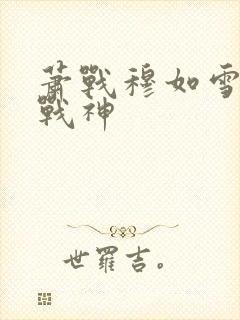 萧戰穆如雪
戰神
世羅吉。